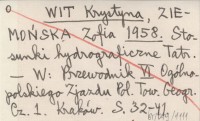 WIT Krystyna, ZIE-
MOŃSKA Zofia 1958. Sto-
sunki hydrograficzne Tatr.
— W: Przewodnik VI Ogólno-
polskiego Zjazdu Pol. Tow. Geogr.
Cz. 1. Kraków. S. 32-41